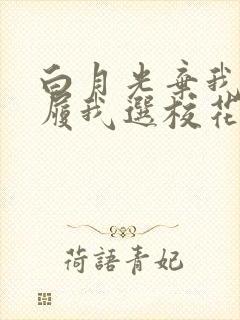 白月光棄我
履我選校花
荷語青妃